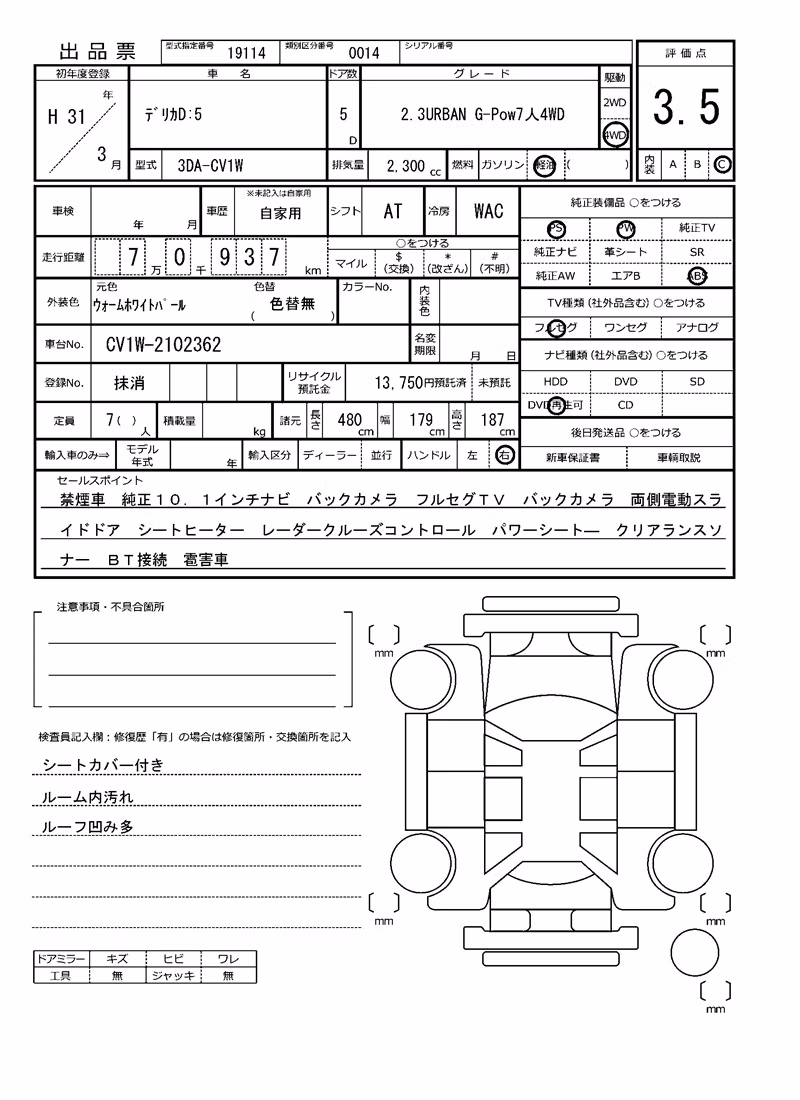 出品票 型式指定番号 19114 類別区分番号 0014 シリアル番号
評価点
3.5
内装 A B C
初年度登録 車名 ドア数 グレード 駆動
H 31 年 3 月 デリカD:5 5 D 2.3URBAN G-Pow7人4WD 2WD 4WD
型式 3DA-CV1W 排気量 2,300 cc 燃料 ガソリン 軽油 ( )
車検 年 月 車歴 ※未記入は自家用 自家用 シフト AT 冷房 WAC
走行距離 7 万 0 千 9 3 7 km ○をつける
マイル $(交換) *(改ざん) #(不明)
外装色 元色 ウォームホワイトパール 色替 色替無 ( ) カラーNo. 内装色
車台No. CV1W-2102362 名変期限 月 日
登録No. 抹消 リサイクル預託金 13,750円預託済 未預託
定員 7( ) 人 積載量 kg 諸元 長さ 480 cm 幅 179 cm 高さ 187 cm
輸入車のみ⇒ モデル年式 年 輸入区分 ディーラー 並行 ハンドル 左 右
純正装備品 ○をつける
PS PW 純正TV
純正ナビ 革シート SR
純正AW エアB ABS
TV種類(社外品含む)○をつける
フルセグ ワンセグ アナログ
ナビ種類(社外品含む)○をつける
HDD DVD SD
DVD再生可 CD
後日発送品 ○をつける
新車保証書 車輌取説
セールスポイント
禁煙車 純正10.1インチナビ バックカメラ フルセグTV バックカメラ 両側電動スラ
イドドア シートヒーター レーダークルーズコントロール パワーシート― クリアランスソ
ナー BT接続 雹害車
注意事項・不具合箇所
検査員記入欄:修復歴「有」の場合は修復箇所・交換箇所を記入
シートカバー付き
ルーム内汚れ
ルーフ凹み多
ドアミラー キズ ヒビ ワレ
工具 無 ジャッキ 無
mm
mm
mm
mm
mm